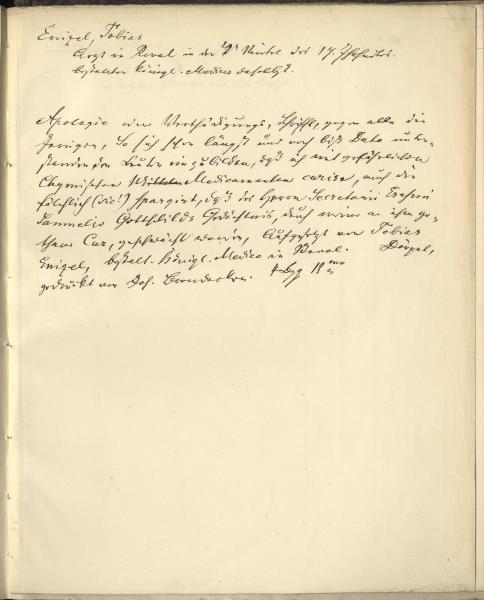 Enizel, Tobias
Arzt in Reval in der Viertel des 17. Jhhdts.
bestallter königl. Medicus daselbst.
Apologie oder Verthädigungs-schrifft, gegen alle die
jenigen, so sich schon längst und noch biß dato unter-
standen den Leuten einzubilden, daß ich mit gefährlichen
Chymischen Medicamenten curire, auch die
fälschlich (sic!) spargirt, daß des Herrn Secretarii
Sammelis durch meine an ihm ge-
thane Cur, geschwächt worden, Aufgesetzt von Tobias
Enizel, bestalt. Königl. Medico in Reval. Dörpt,
gedruckt von Joh.